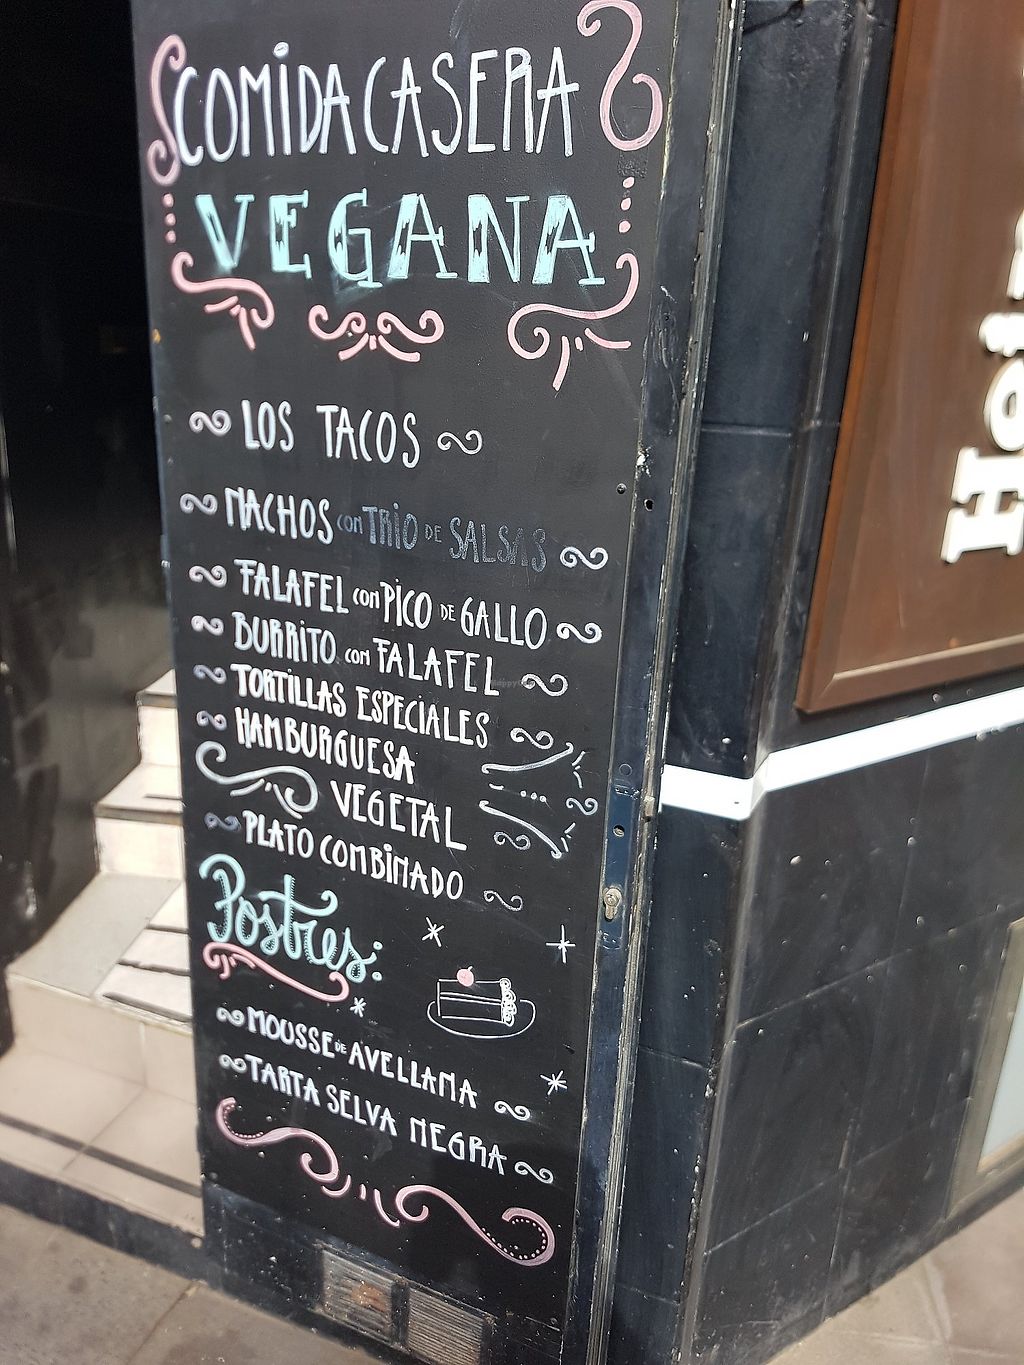 COMIDA CASERA
VEGANA
LOS TACOS
NACHOS CON TRIO DE SALSAS
FALAFEL CON PICO DE GALLO
BURRITO CON FALAFEL
TORTILLAS ESPECIALES
HAMBURGUESA
VEGETAL
PLATO COMBINADO
Postres:
MOUSSE DE AVELLANA
TARTA SELVA NEGRA